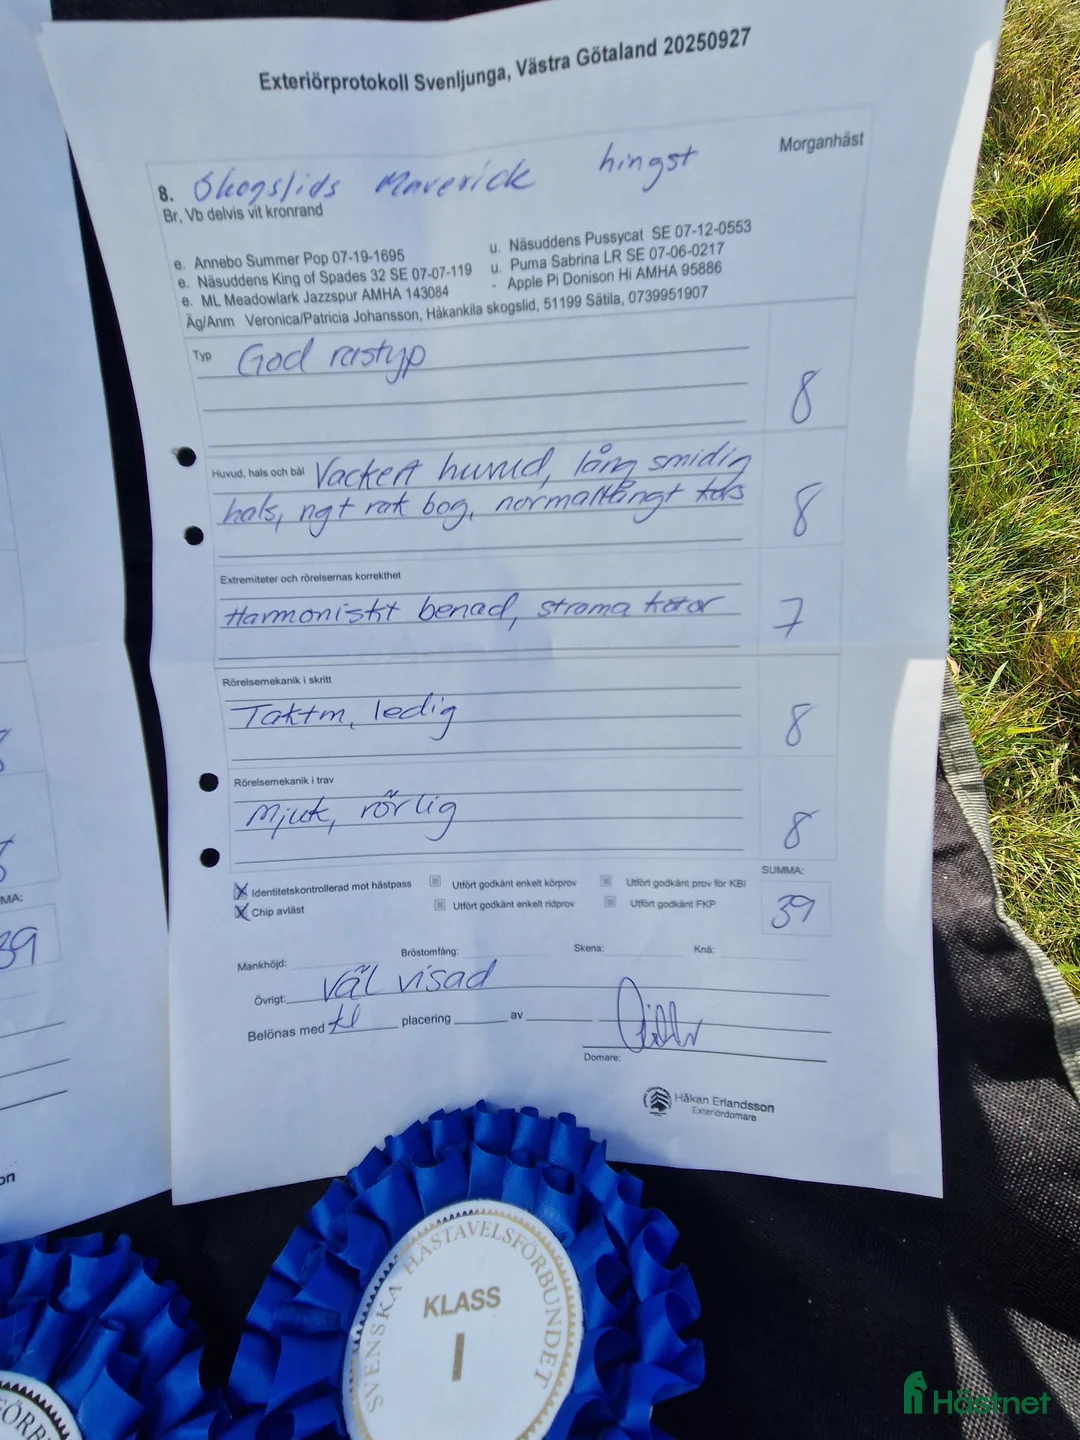 Exteriörprotokoll Svenljunga, Västra Götaland 20250927
Morganhäst
8. Skogslids Maverick hingst
Br, Vb delvis vit kronrand
e. Annebo Summer Pop 07-19-1695
u. Näsuddens Pussycat SE 07-12-0553
e. Näsuddens King of Spades 32 SE 07-07-119
u. Puma Sabrina LR SE 07-06-0217
e. ML Meadowlark Jazzspur AMHA 143084
- Apple Pi Donison Hi AMHA 95886
Äg/Anm Veronica/Patricia Johansson, Håkankila skogslid, 51199 Sätila, 0739951907
Typ God rastyp
8
Huvud, hals och bål Vackert huvud, lång smidig
hals, ngt rak bog, normallångt kors
8
Extremiteter och rörelsernas korrekthet
Harmoniskt benad, strama kotor
7
Rörelsemekanik i skritt
Taktm, ledig
8
Rörelsemekanik i trav
Mjuk, rörlig
8
SUMMA:
39
X Identitetskontrollerad mot hästpass
Utfört godkänt enkelt körprov
Utfört godkänt prov för KBI
X Chip avläst
Utfört godkänt enkelt ridprov
Utfört godkänt FKP
Mankhöjd:
Bröstomfång:
Skena:
Knä:
Övrigt: Väl visad
Belönas med kl placering av
Domare:
Håkan Erlandsson
Exteriördomare
MA:
39
on
SVENSKA HÄSTAVELSFÖRBUNDET
KLASS
I
Hästnet